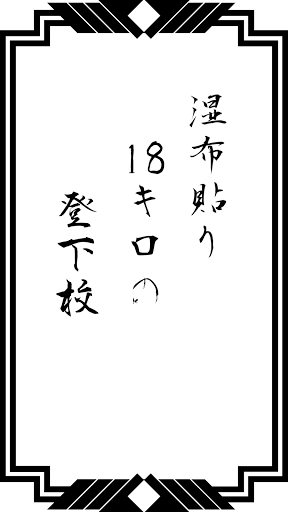 湿布貼り
18キロの
登下校